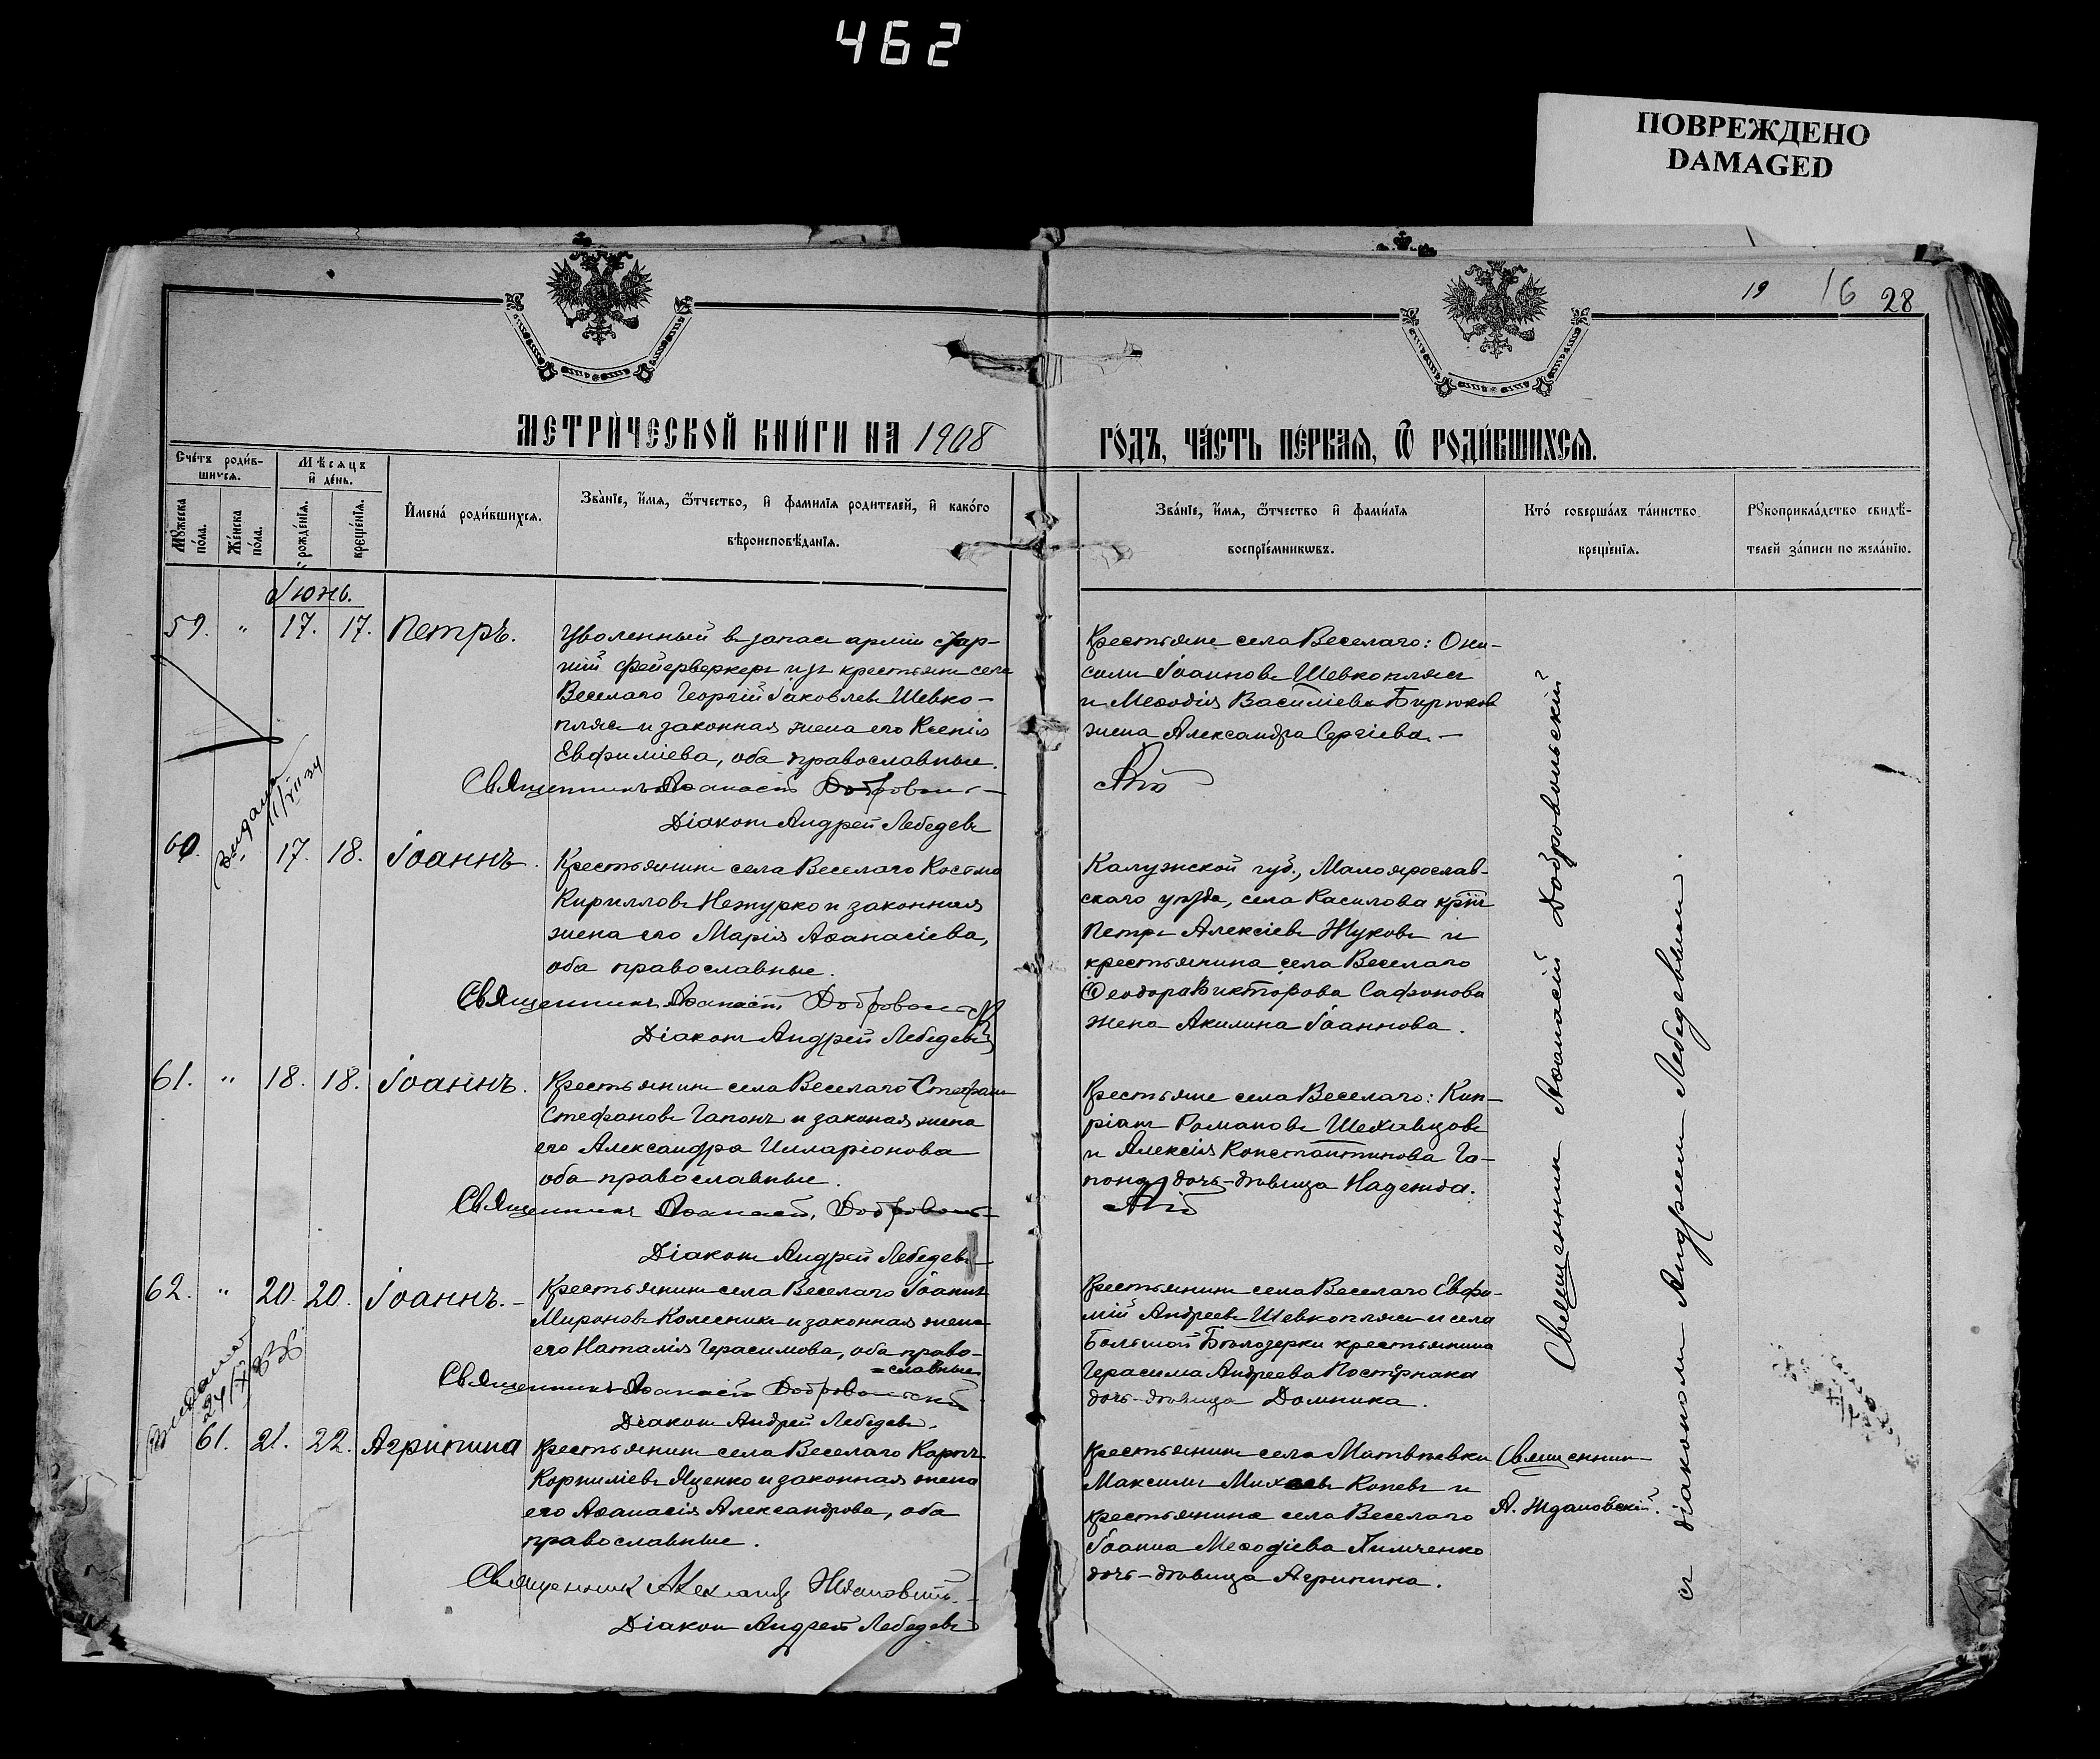 462
ПОВРЕЖДЕНО
DAMAGED
19 16 28
МЕТРИ́ЧЕСКОЙ КНИ́ГИ НА 1908
ГО́ДЪ, ЧА́СТЬ ПЕ́РВАѦ, Ѿ РОДИ́ВШИХСѦ.
Сче́тъ роди́в-
шихсѧ.
Мѣ́сѧцъ
и҆ де́нь.
Мꙋ́жеска по́ла.
Же́нска по́ла.
рожде́нїѧ.
креще́нїѧ.
И҆мена̀ роди́вшихсѧ.
Зва́нїе, и҆́мѧ, ѻ҆́тчество, и҆ фамѝлїѧ родителей, и҆ како́го
вѣроисповѣ́данїѧ.
Зва́нїе, и҆́мѧ, ѻ҆́тчество и҆ фами́лїѧ
воспрїе́мникѡвъ.
Кто́ соверша́лъ та́инство
креще́нїѧ.
Рꙋкоприкла́дство свидѣ́-
телей за́писи по жела́нїю.
Іюнь.
59. " 17. 17. Петръ.
Уволенный въ запасъ арміи стар-
шій фейерверкеръ изъ крестьянъ села
Веселаго Георгій Іаковлевъ Шевко-
плясъ и законная жена его Ксенія
Евфиміева, оба православные.
Священникъ Аѳанасій
Діаконъ Андрей Лебедевъ
Крестьяне села Веселаго: Они-
симъ Іоанновъ Шевкоплясъ
и Меѳодія Василіева Бирюкова
жена Александра Сергіева.
выдана
60. " 17. 18. Іоаннъ.
Крестьянинъ села Веселаго Косьма
Кирилловъ Нежурко и законная
жена его Марія Аѳанасіева,
оба православные.
Священникъ Аѳанасій
Діаконъ Андрей Лебедевъ
Калужской губ., Малоярослав-
скаго уѣзда, села Касилова
Петръ Алексіевъ Жуковъ и
крестьянина села Веселаго
Ѳеодора Викторова Сафонова
жена Акилина Іоаннова.
61. " 18. 18. Іоаннъ.
Крестьянинъ села Веселаго Стефанъ
Стефановъ Гапонъ и законая жена
его Александра Илларіонова
оба православные.
Священникъ Аѳанасій
Діаконъ Андрей Лебедевъ
Крестьяне села Веселаго: Кип-
ріанъ Романовъ Шеховцовъ
и Алексія Константинова Га-
пона дочь-дѣвица Надежда.
62. " 20. 20. Іоаннъ.
Крестьянинъ села Веселаго Іоаннъ
Мироновъ Колесникъ и законная жена
его Наталія Герасимова, оба право-
=славные.
Священникъ Аѳанасій Добровольскій
Діаконъ Андрей Лебедевъ.
Крестьянинъ села Веселаго Евфи-
мій Андреевъ Шевкоплясъ и села
Большой Бѣлозерки крестьянина
Герасима Андреева
дочь-дѣвица Домника.
61. 21. 22. Агрипина
Крестьянинъ села Веселаго Карпъ
Корниліевъ Яценко и законная жена
его Аѳанасія Александрова, оба
православные.
Священникъ Александръ Ждановскій
Діаконъ Андрей Лебедевъ
Крестьянинъ села Матвѣевки
Максимъ Коневъ и
крестьянина села Веселаго
Іоанна Меѳодіева
дочь-дѣвица Агрипина.
Священникъ
А. Ждановскій.
Священникъ Аѳанасій Добровольскій
съ діакономъ Андреемъ Лебедевымъ.